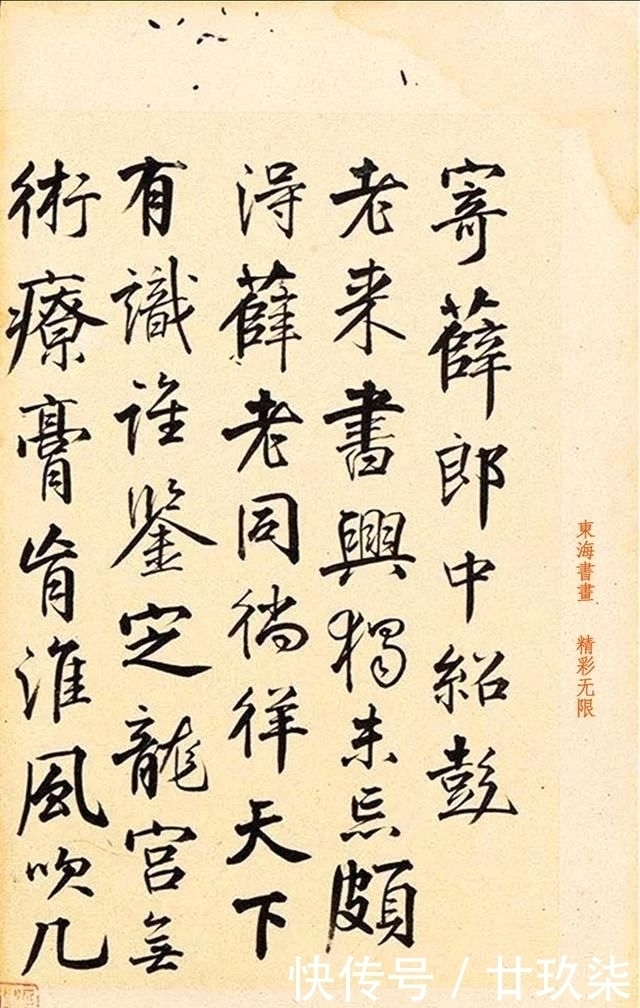 寄薛郎中紹彭
老来書興獨未忘頗
淂薛老同徜徉天下
有識誰鑒定龍宮無
術療膏肓淮風吹几
東海書畫 精彩无限
快传号 / 廿玖柒